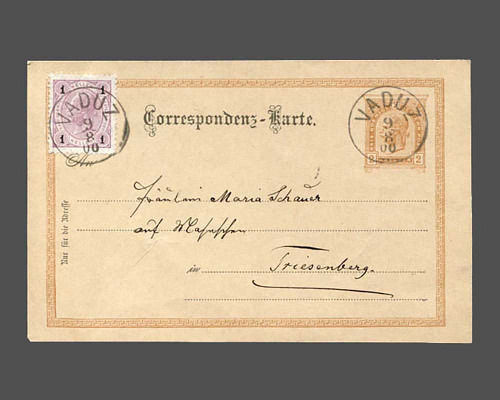 1 1
1 1
VADUZ
9
8
00
VADUZ
9
8
00
2 2
Correspondenz-Karte.
An
Nur für die Adresse
Fräulein Maria Schauer
auf
in Triesenberg.